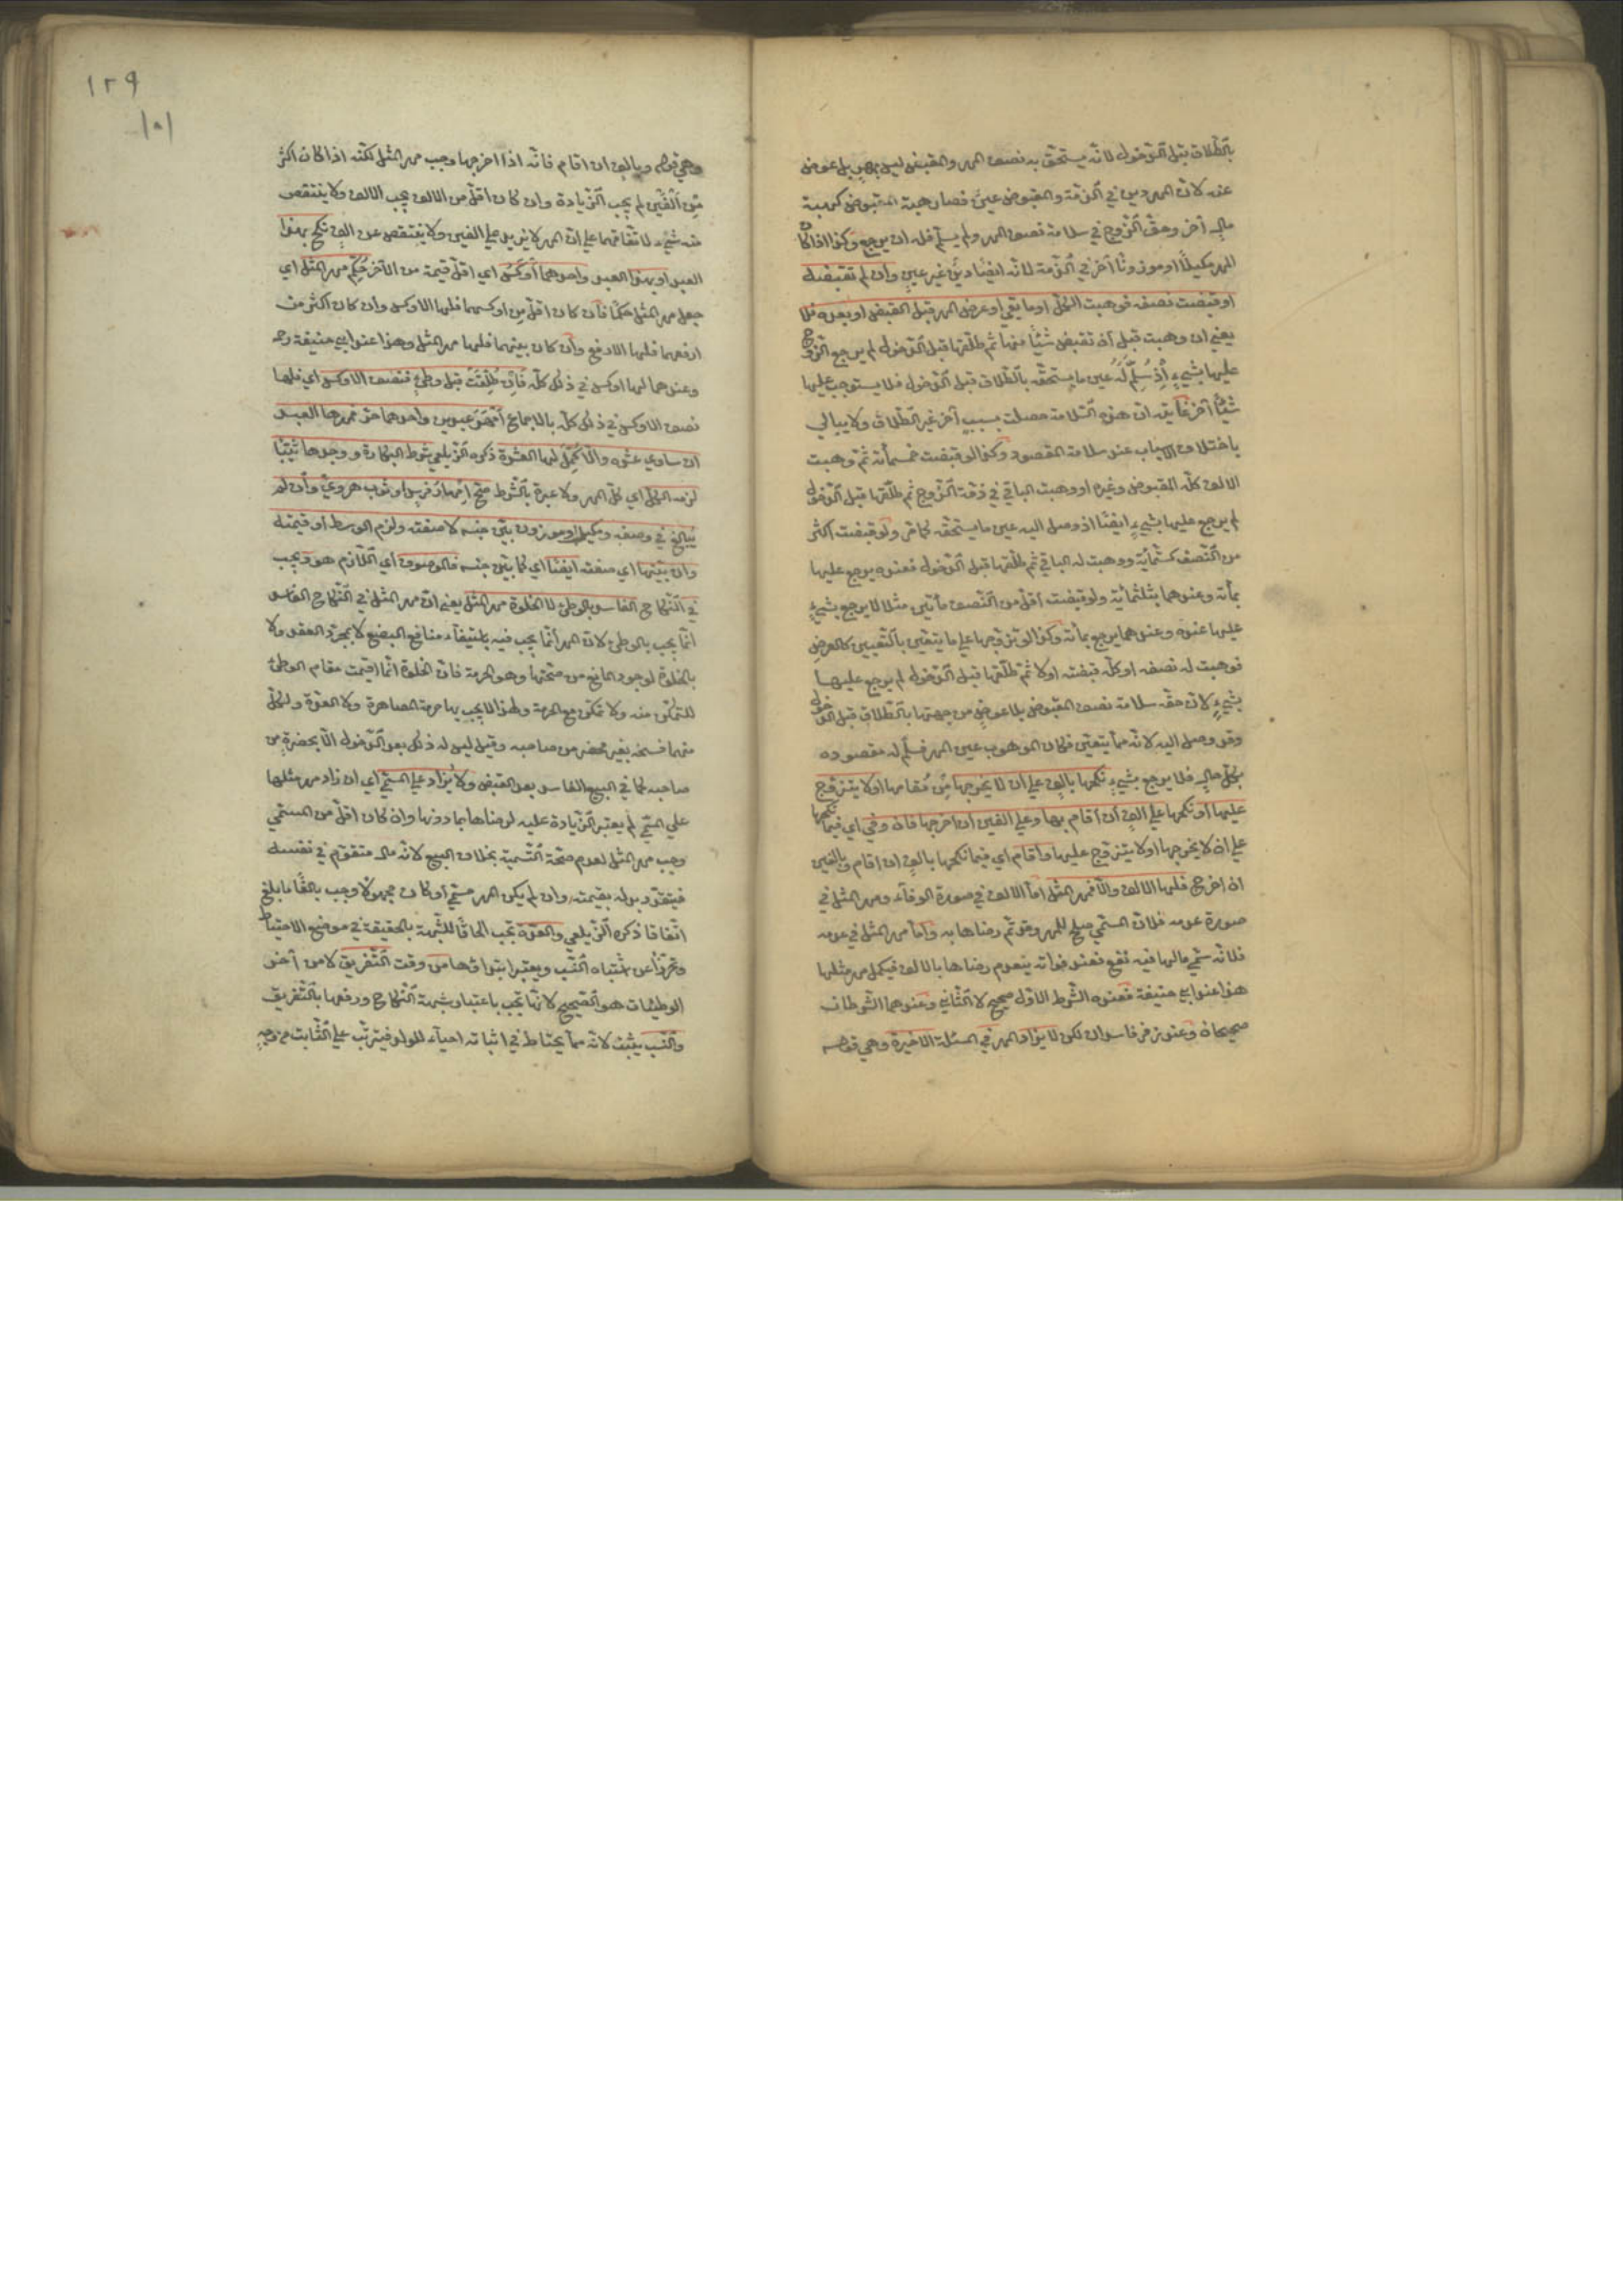 بالطلاق قبل الدخول لانه يستحق به نصف المهر والمقبوض ليس بمهر بل عوض
عنه لان المهر دين في الذمة والمقبوض عين فصار هبة المقبوض كهبة
مال آخر وحق الزوج في سلامة نصف المهر ولم يسلم فله ان يرجع وكذا اذا كان
المهر مكيلا او موزونا آخر في الذمة لانه ايضا دين غير عين وان لم تقبضه
او قبضت نصفه فوهبت الكل او ما بقي او عرض المهر قبل القبض او بعده فلا
يعني ان وهبت قبل ان تقبض شيئا منها ثم طلقها قبل الدخول لم يرجع الزوج
عليها بشيء اذ سلم له عين ما يستحقه بالطلاق قبل الدخول فلا يستوجب عليها
شيئا آخر غايته ان هذه السلامة حصلت بسبب آخر غير الطلاق ولا يبالي
باختلاف الاسباب عند سلامة المقصود وكذا لو قبضت خمسمائة ثم وهبت
الالف كله المقبوض وغيره او وهبت الباقي في ذمة الزوج ثم طلقها قبل الدخول
لم يرجع عليها بشيء ايضا اذ وصل اليه عين ما يستحقه كما مر ولو قبضت اكثر
من النصف كستمائة ووهبت له الباقي ثم طلقها قبل الدخول فعنده يرجع عليها
بمائة وعندهما بثلثمائة ولو قبضت اقل من النصف مأتين مثلا لا يرجع بشيء
عليها عنده وعندهما يرجع بمائة وكذا لو تزوجها على ما يتعين بالتعيين كالعرض
فوهبت له نصفه او كله قبضته او لا ثم طلقها قبل الدخول لم يرجع عليها
بشيء لان حقه سلامة نصف المقبوض بلا عوض من جهتها بالطلاق قبل الدخول
وقد وصل اليه لانه مما يتعين فكان الموهوب عين المهر فسلم له مقصوده
بكل حال فلا يرجع بشيء نكحها بالف على ان لا يخرجها من مقامها او لا يتزوج
عليها او نكحها على الف ان اقام بها وعلى الفين ان اخرجها فان وفى اي فيما نكحها
على ان لا يخرجها او لا يتزوج عليها واقام اي فيما نكحها بالف ان اقام وبالفين
ان اخرج فلها الالف والا فمهر المثل اما الالف في صورة الوفاء ومهر المثل في
صورة عدمه فلان المسمى صلح للمهر وقد تم رضاها به واما مهر المثل في عدمه
فلانه سمى مالها فيه نفع فعند فواته ينعدم رضاها بالالف فيكمل مهر مثلها
هذا عند ابي حنيفة فعنده الشرط الاول صحيح لا الثاني وعندهما الشرطان
صحيحان وعند زفر فاسدان لكن لا يزاد المهر في المسئلة الاخيرة وهي قوله
١٢٩
١٥١
وهي قوله وبالف ان اقام فانه اذا اخرجها وجب مهر المثل لكنه اذا كان اكثر
من الفين لم يجب الزيادة وان كان اقل من الالف يجب الالف ولا ينتقص
منه شيء لاتفاقهما على ان المهر لا يزيد على الفين ولا ينتقص عن الف نكح بهذا
العبد او بهذا العبد واحدهما اوكس اي اقل قيمة من الآخر حكم مهر المثل اي
جعل مهر المثل حكما فان كان اقل من اوكسهما فلها الاوكس وان كان اكثر من
ارفعهما فلها الارفع وان كان بينهما فلها مهر المثل وهذا عند ابي حنيفة رحمه
وعندهما لها اوكس في ذلك كله فان طلقت قبل وطئ فنصف الاوكس اي فلها
نصف الاوكس في ذلك كله بالاجماع امهر عبدين واحدهما حر فمهرها العبد
ان ساوى عشرة والا كمل لها العشرة ذكره الزيلعي شرط البكارة ووجدها ثيبا
لزمه الكل اي كل المهر ولا عبرة بالشرط صح امهار فرس او ثوب هروي وان لم
يبالغ في وصفه ومكيل وموزون بين جنسه لا صفته ولزم الوسط او قيمته
وان بينها اي صفته ايضا اي كما بين جنسه فالموصوف اي اللازم هو ويجب
في النكاح الفاسد بالوطئ لا الخلوة مهر المثل يعني ان مهر المثل في النكاح الفاسد
انما يجب بالوطئ لان المهر انما يجب فيه باستيفاء منافع البضع لا بمجرد العقد ولا
بالخلوة لوجود المانع من صحتها وهو الحرمة فان الخلوة انما اقيمت مقام الوطئ
للتمكن منه ولا تمكن مع الحرمة ولهذا لا يجب بها حرمة المصاهرة ولا العدة ولكل
منهما فسخه بغير محضر من صاحبه وقيل ليس له ذلك بعد الدخول الا بحضرة من
صاحبه كما في البيع الفاسد بعد القبض ولا يزاد على المسمى اي ان زاد مهر مثلها
على المسمى لم يعتبر الزيادة عليه لرضاها بما دونها وان كان اقل من المسمى
وجب مهر المثل لعدم صحة التسمية بخلاف البيع لانه مال متقوم في نفسه
فيتقدر بدله بقيمته وان لم يكن المهر مسمى او كان مجهولا وجب بالغا ما بلغ
اتفاقا ذكره الزيلعي والعدة تجب الحاقا للشبهة بالحقيقة في موضع الاحتياط
وتحرزا عن اشتباه النسب ويعتبر ابتداؤها من وقت التفريق لا من آخر
الوطئات هو الصحيح لانها تجب باعتبار شبهة النكاح ورفعها بالتفريق
والنسب يثبت لانه مما يحتاط في اثباته احياء للولد فيترتب على الثابت من وجه